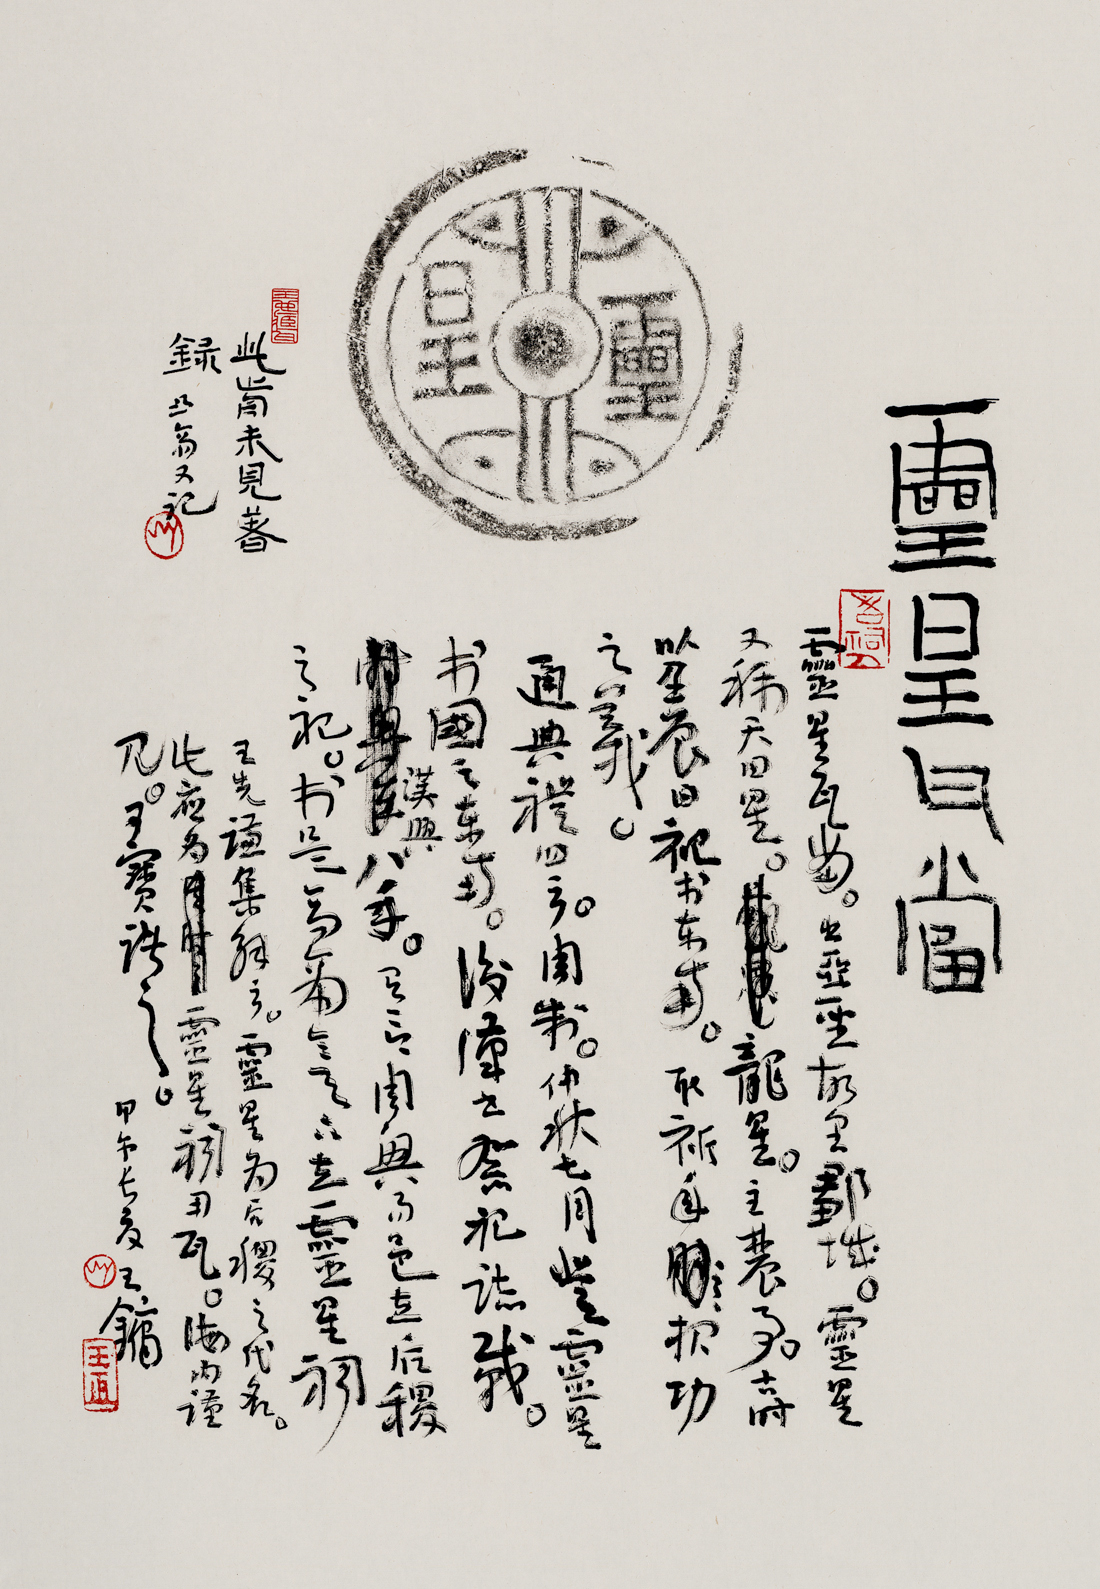 靈星瓦當
靈星
靈星瓦當。出亞聖故里鄒城。靈星
又稱天田星。龍星。主農事。古時
以壬辰日祀於東南。取祈年報功
之義。
通典禮四云。周制。仲秋七月祭靈星
於國之東南。後漢書祭祀誌載。
漢興八年。有言周興而邑立后稷
之祀。於是高帝令天下立靈星祠
王先謙集解云。靈星為后稷之代名。
此應為靈星祠用瓦。海内謹
見。可寶之。甲午長夏王鏞
此當未見著
錄 翁又記